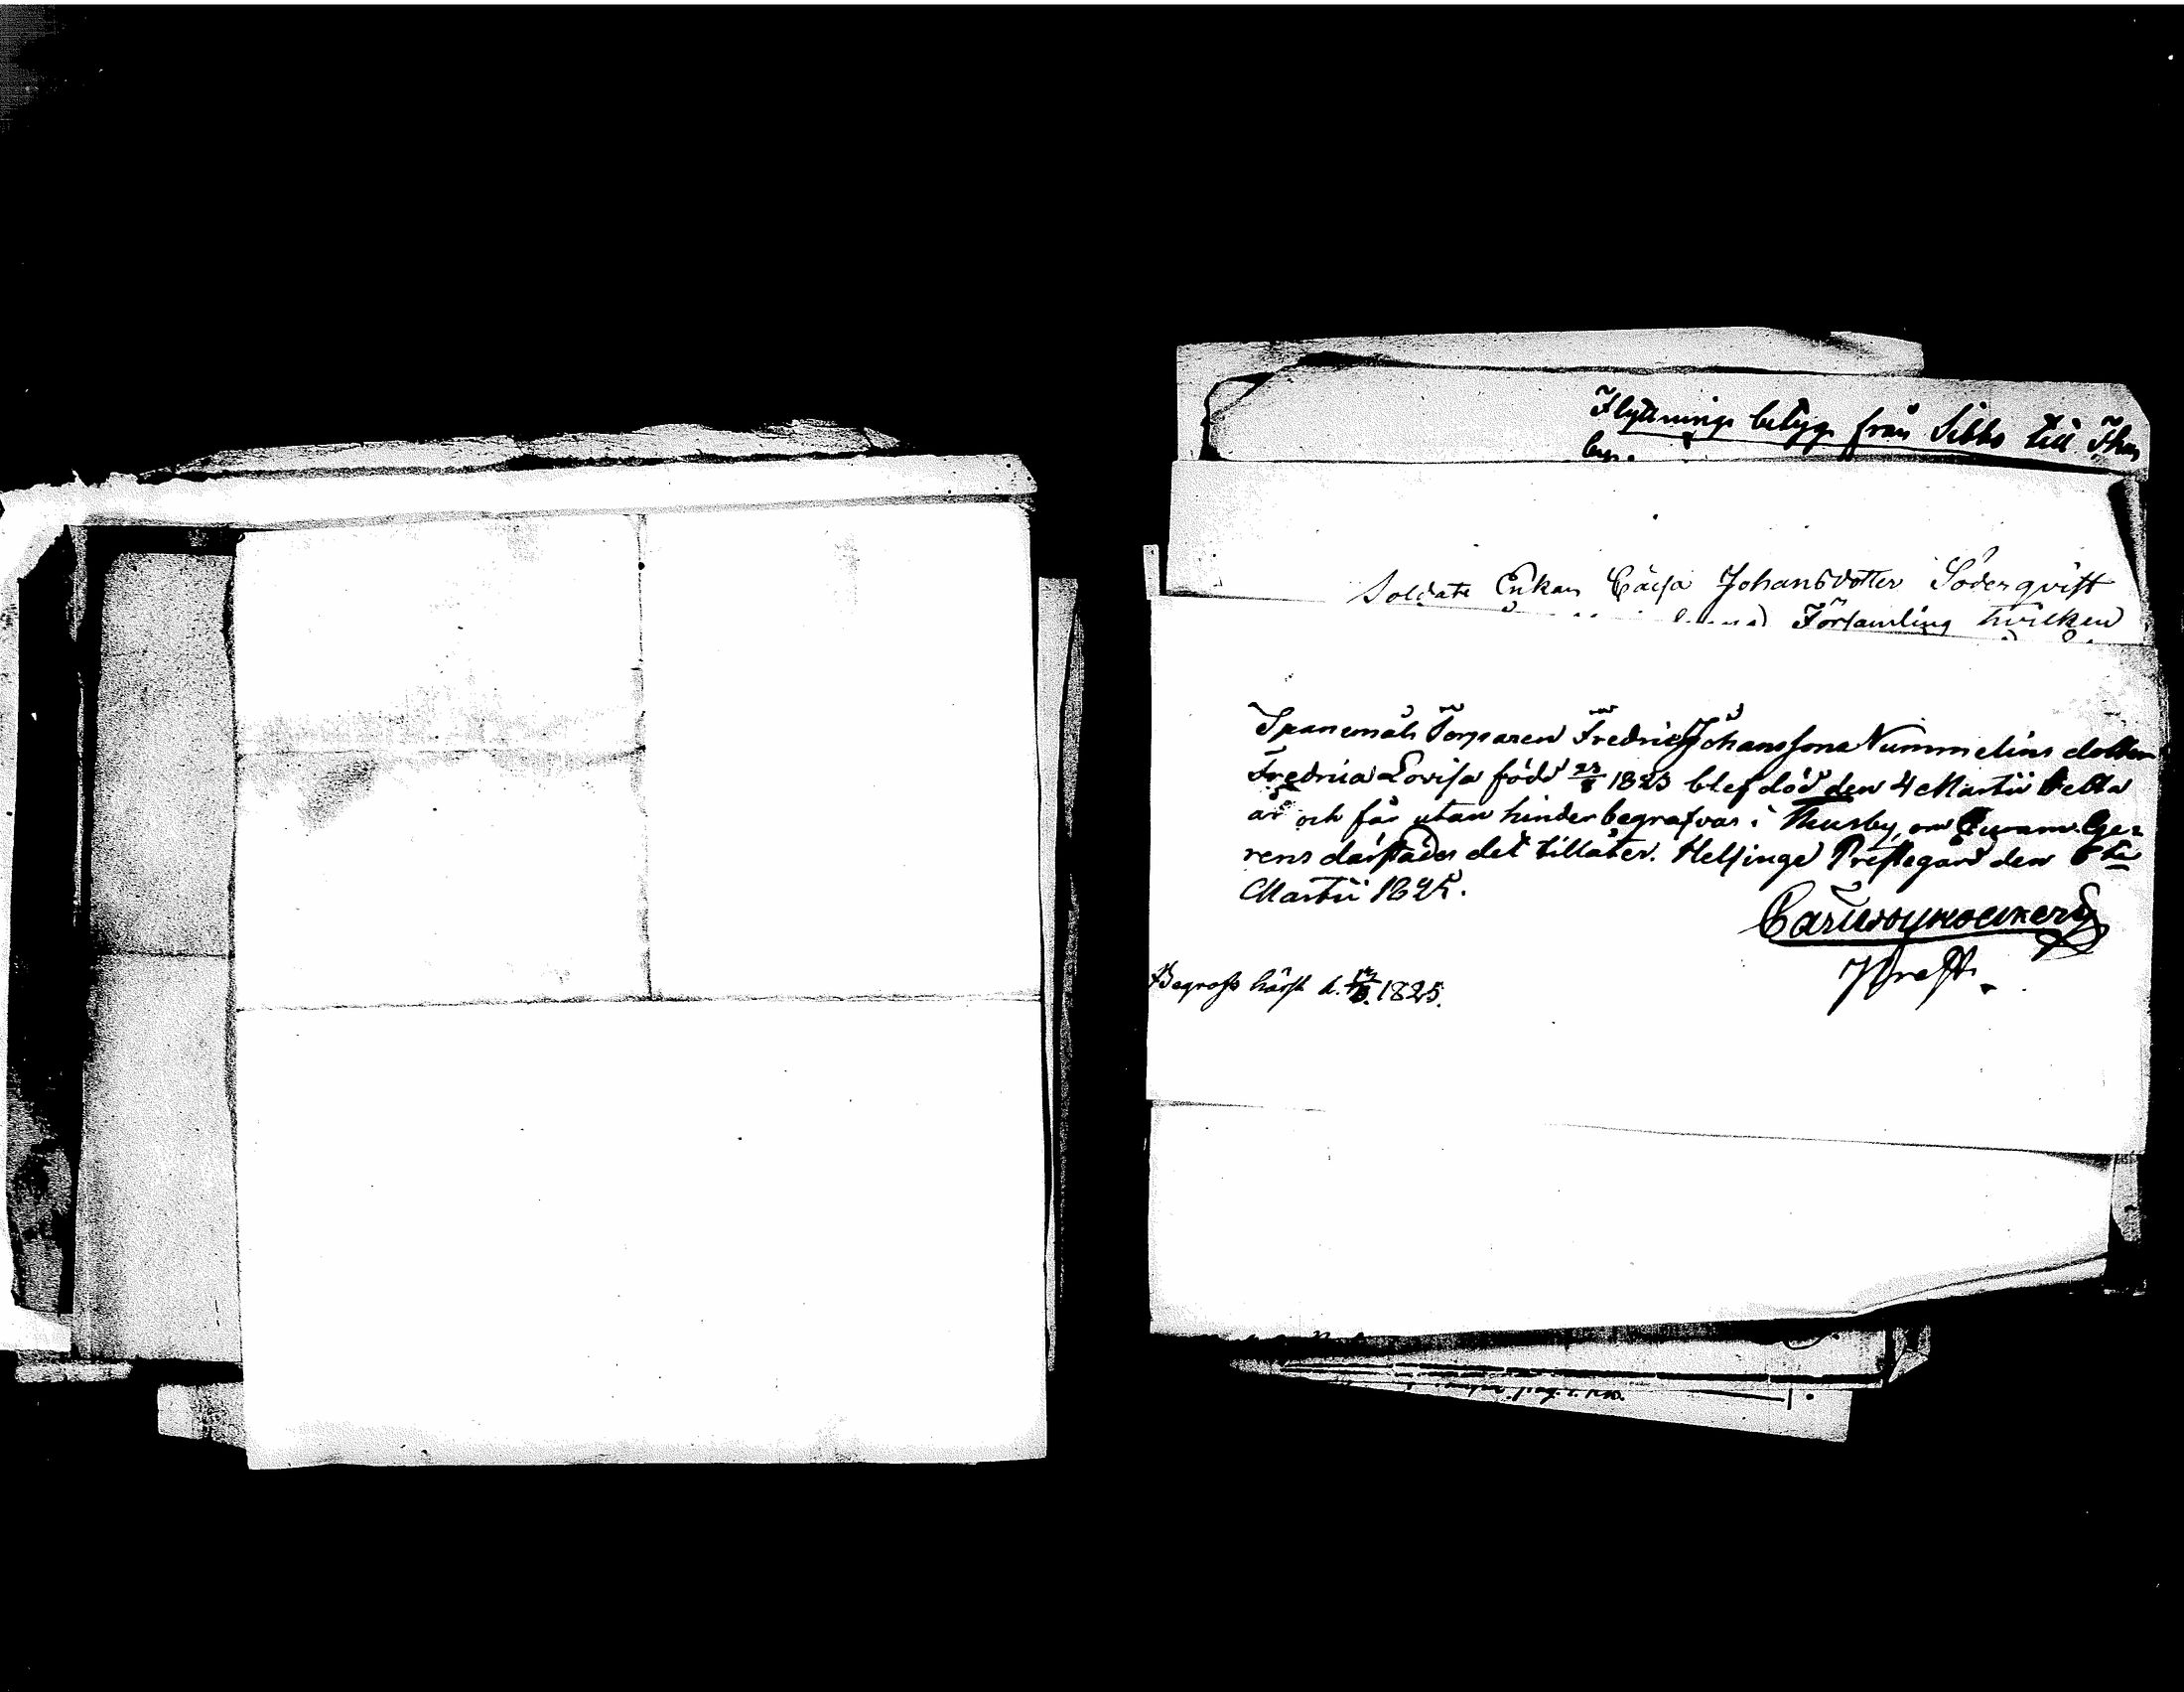 Flyttnings betyg från Sibbo till Thus
by.
Soldats Enkan Cajsa Johansdotter Söderqvist
Församling hvilken
Torparen Fredric Johanssons Nummelins dotter
Fredrica Lovisa född 23/8 1823 blef död den 4 Martii detta
år och får utan hinder begrafvas i Thusby, om
rens därstädes det tillåter. Helsinge Prestegård den
Martii 1825.
Begrofs härst. d. 1825.